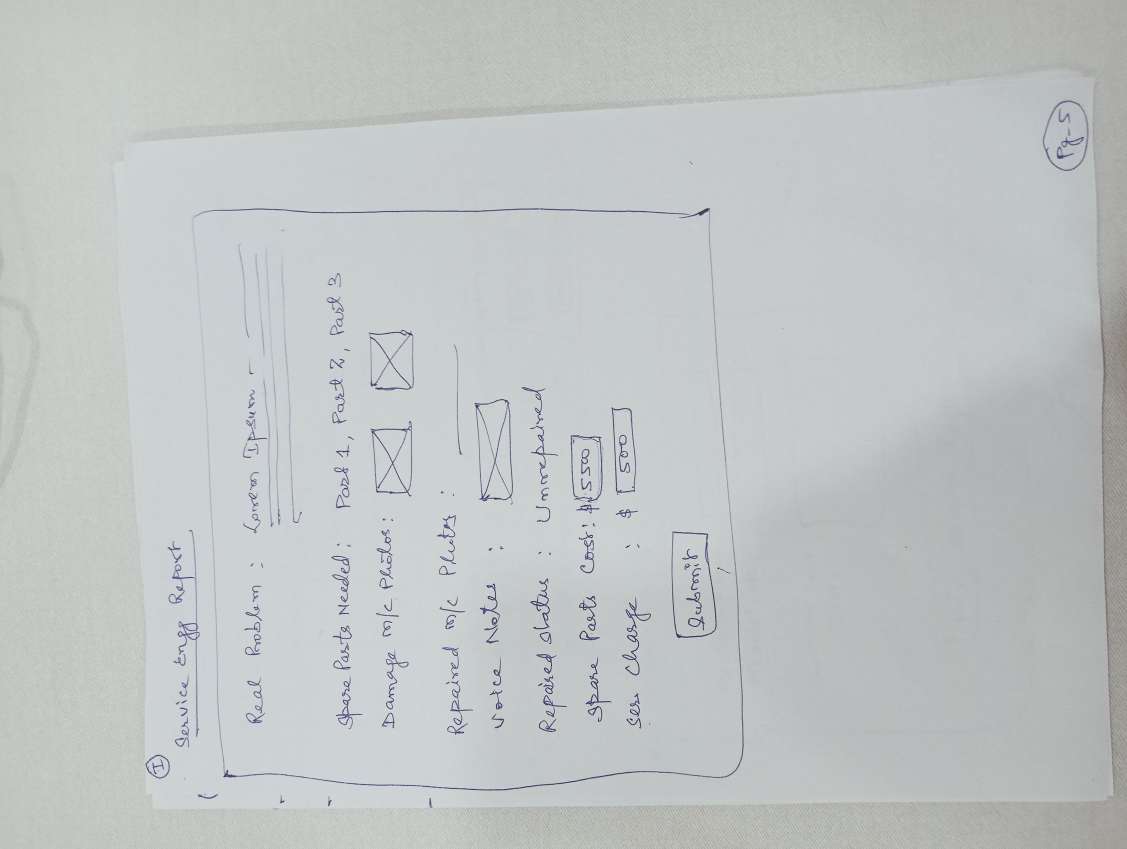 I
Service Engg Report
Real Problem : Lorem Ipsum -
Spare Parts Needed : Part 1, Part 2, Part 3
Damage m/c Photos :
Repaired m/c Photos :
Voice Notes :
Repaired status : Unrepaired
Spare Parts Cost : $ 5500
Ser. Charge : $ 500
Submit
Pg-5